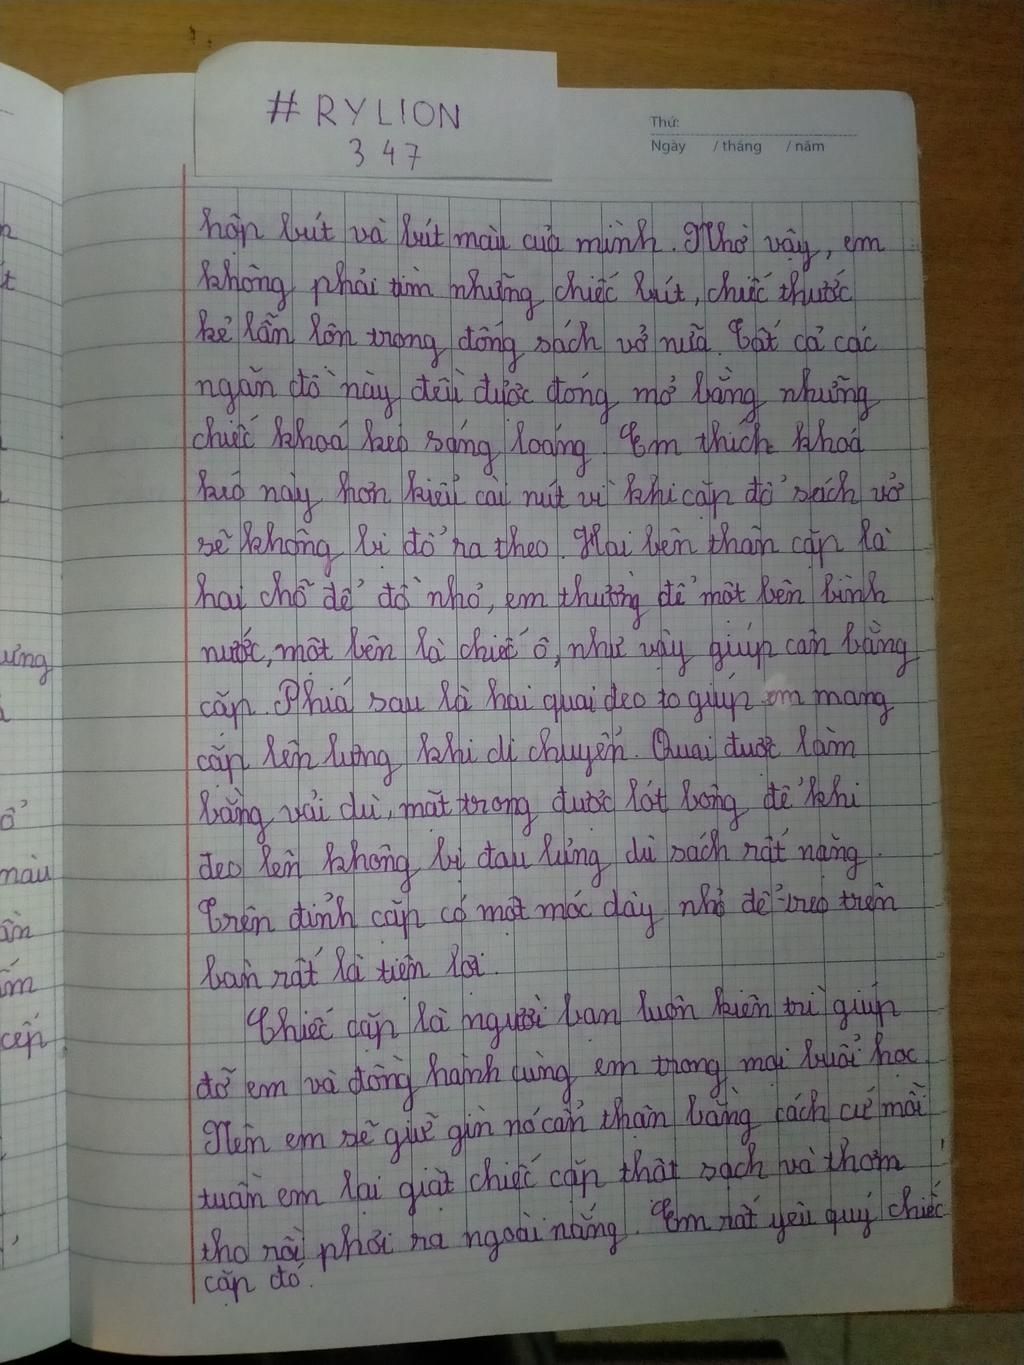 # RYLION
347
Thứ:
Ngày / tháng / năm
hộp bút và bút màu của mình. Nhờ vậy, em
không phải tìm những chiếc bút, chiếc thước
kẻ lẫn lộn trong đống sách vở nữa. Tất cả các
ngăn đồ này đều được đóng mở bằng những
chiếc khoá kéo sáng loáng. Em thích khoá
kéo này hơn kiểu cài nút vì khi cặp đổ sách vở
sẽ không bị đổ ra theo. Hai bên thân cặp là
hai chỗ để đồ nhỏ, em thường để một bên bình
nước, một bên là chiếc ô, như vậy giúp cân bằng
cặp. Phía sau là hai quai đeo to giúp em mang
cặp lên lưng khi di chuyển. Quai được làm
bằng vải dù, mặt trong được lót bông để khi
đeo lên không bị đau lưng dù sách rất nặng.
Trên đỉnh cặp có một móc dây nhỏ để treo trên
bàn rất là tiện lợi.
Chiếc cặp là người bạn luôn kiên trì giúp
đỡ em và đồng hành cùng em trong mọi buổi học.
Nên em sẽ giữ gìn nó cẩn thận bằng cách cứ mỗi
tuần em lại giặt chiếc cặp thật sạch và thơm
tho rồi phơi ra ngoài nắng. Em rất yêu quý chiếc
cặp đó.
ưng
màu